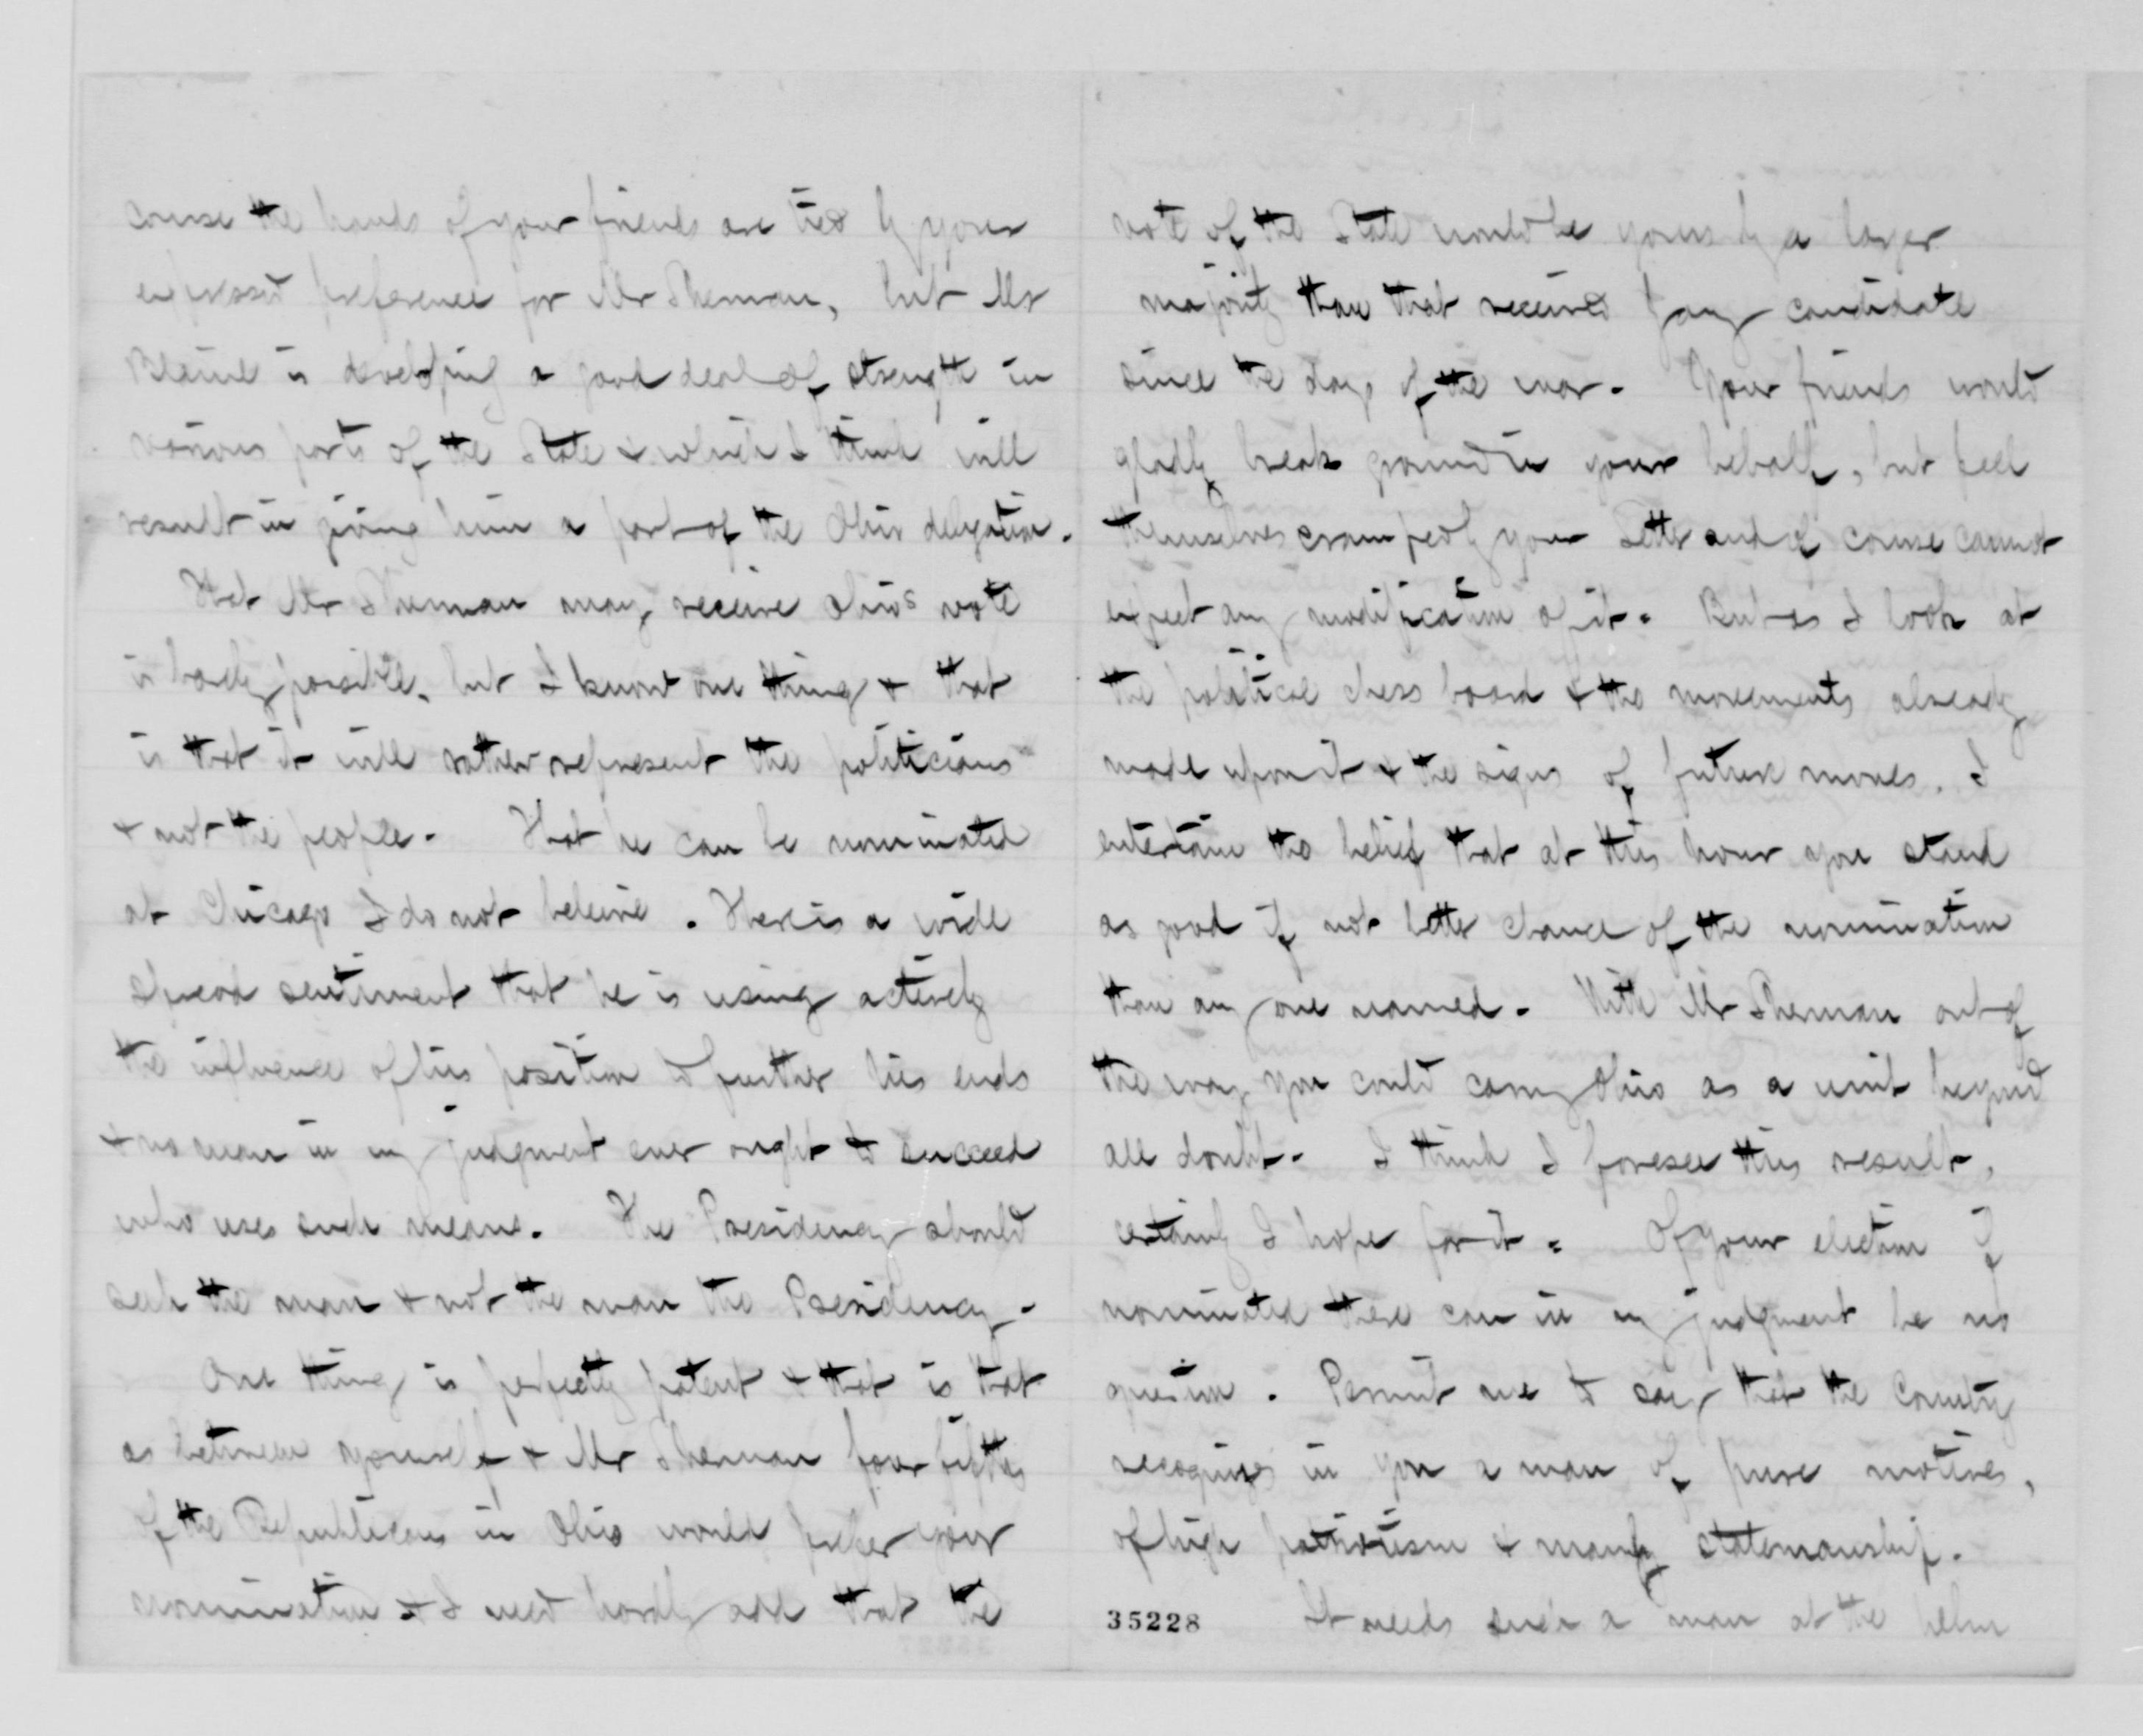 course the hands of your friends are tied by your
expressed preference for Mr Sherman, but Mr
Blaine is developing a good deal of strength in
various parts of the State & which I think will
result in giving him a part of the Ohio delegation.
That Mr Sherman may receive Ohios vote
is barely possible, but I know one thing & that
is that it will rather represent the politicians
& not the people. That he can be nominated
at Chicago I do not beleive. There is a wide
spread sentiment that he is using actively
the influence of his position to further his ends
& no man in my judgment ever ought to succeed
who uses such means. The Presidency should
seek the man & not the man the Presidency.
One thing is perfectly patent & that is that
as between yourself & Mr Sherman four fifths
of the Republicans in Ohio would prefer your
nomination & I need hardly add that the
vote of the State would be yours by a larger
majority than that received by any candidate
since the days of the war. Your friends would
gladly break ground in your behalf, but feel
themselves cramped by your letter and of course cannot
expect any modification of it. But as I look at
the political chess board & the movements already
made upon it & the signs of future moves, I
entertain the belief that at this hour you stand
as good if not better chance of the nomination
than any one named. With Mr Sherman out of
the way you could carry Ohio as a unit beyond
all doubt. I think I foresee this result,
certainly I hope for it. Of your election if
nominated there can in my judgment be no
question. Permit me to say that the Country
recognizes in you a man of pure motives,
of high patriotism & manly statesmanship.
35228 It needs such a man at the helm